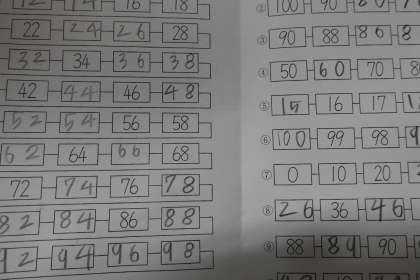 12 14 16 18
22 24 26 28
32 34 36 38
42 44 46 48
52 54 56 58
62 64 66 68
72 74 76 78
82 84 86 88
92 94 96 98
② 100 90 80
③ 90 88 86 8
④ 50 60 70 8
⑤ 15 16 17
⑥ 100 99 98 9
⑦ 0 10 20 2
⑧ 26 36 46
⑨ 88 89 90